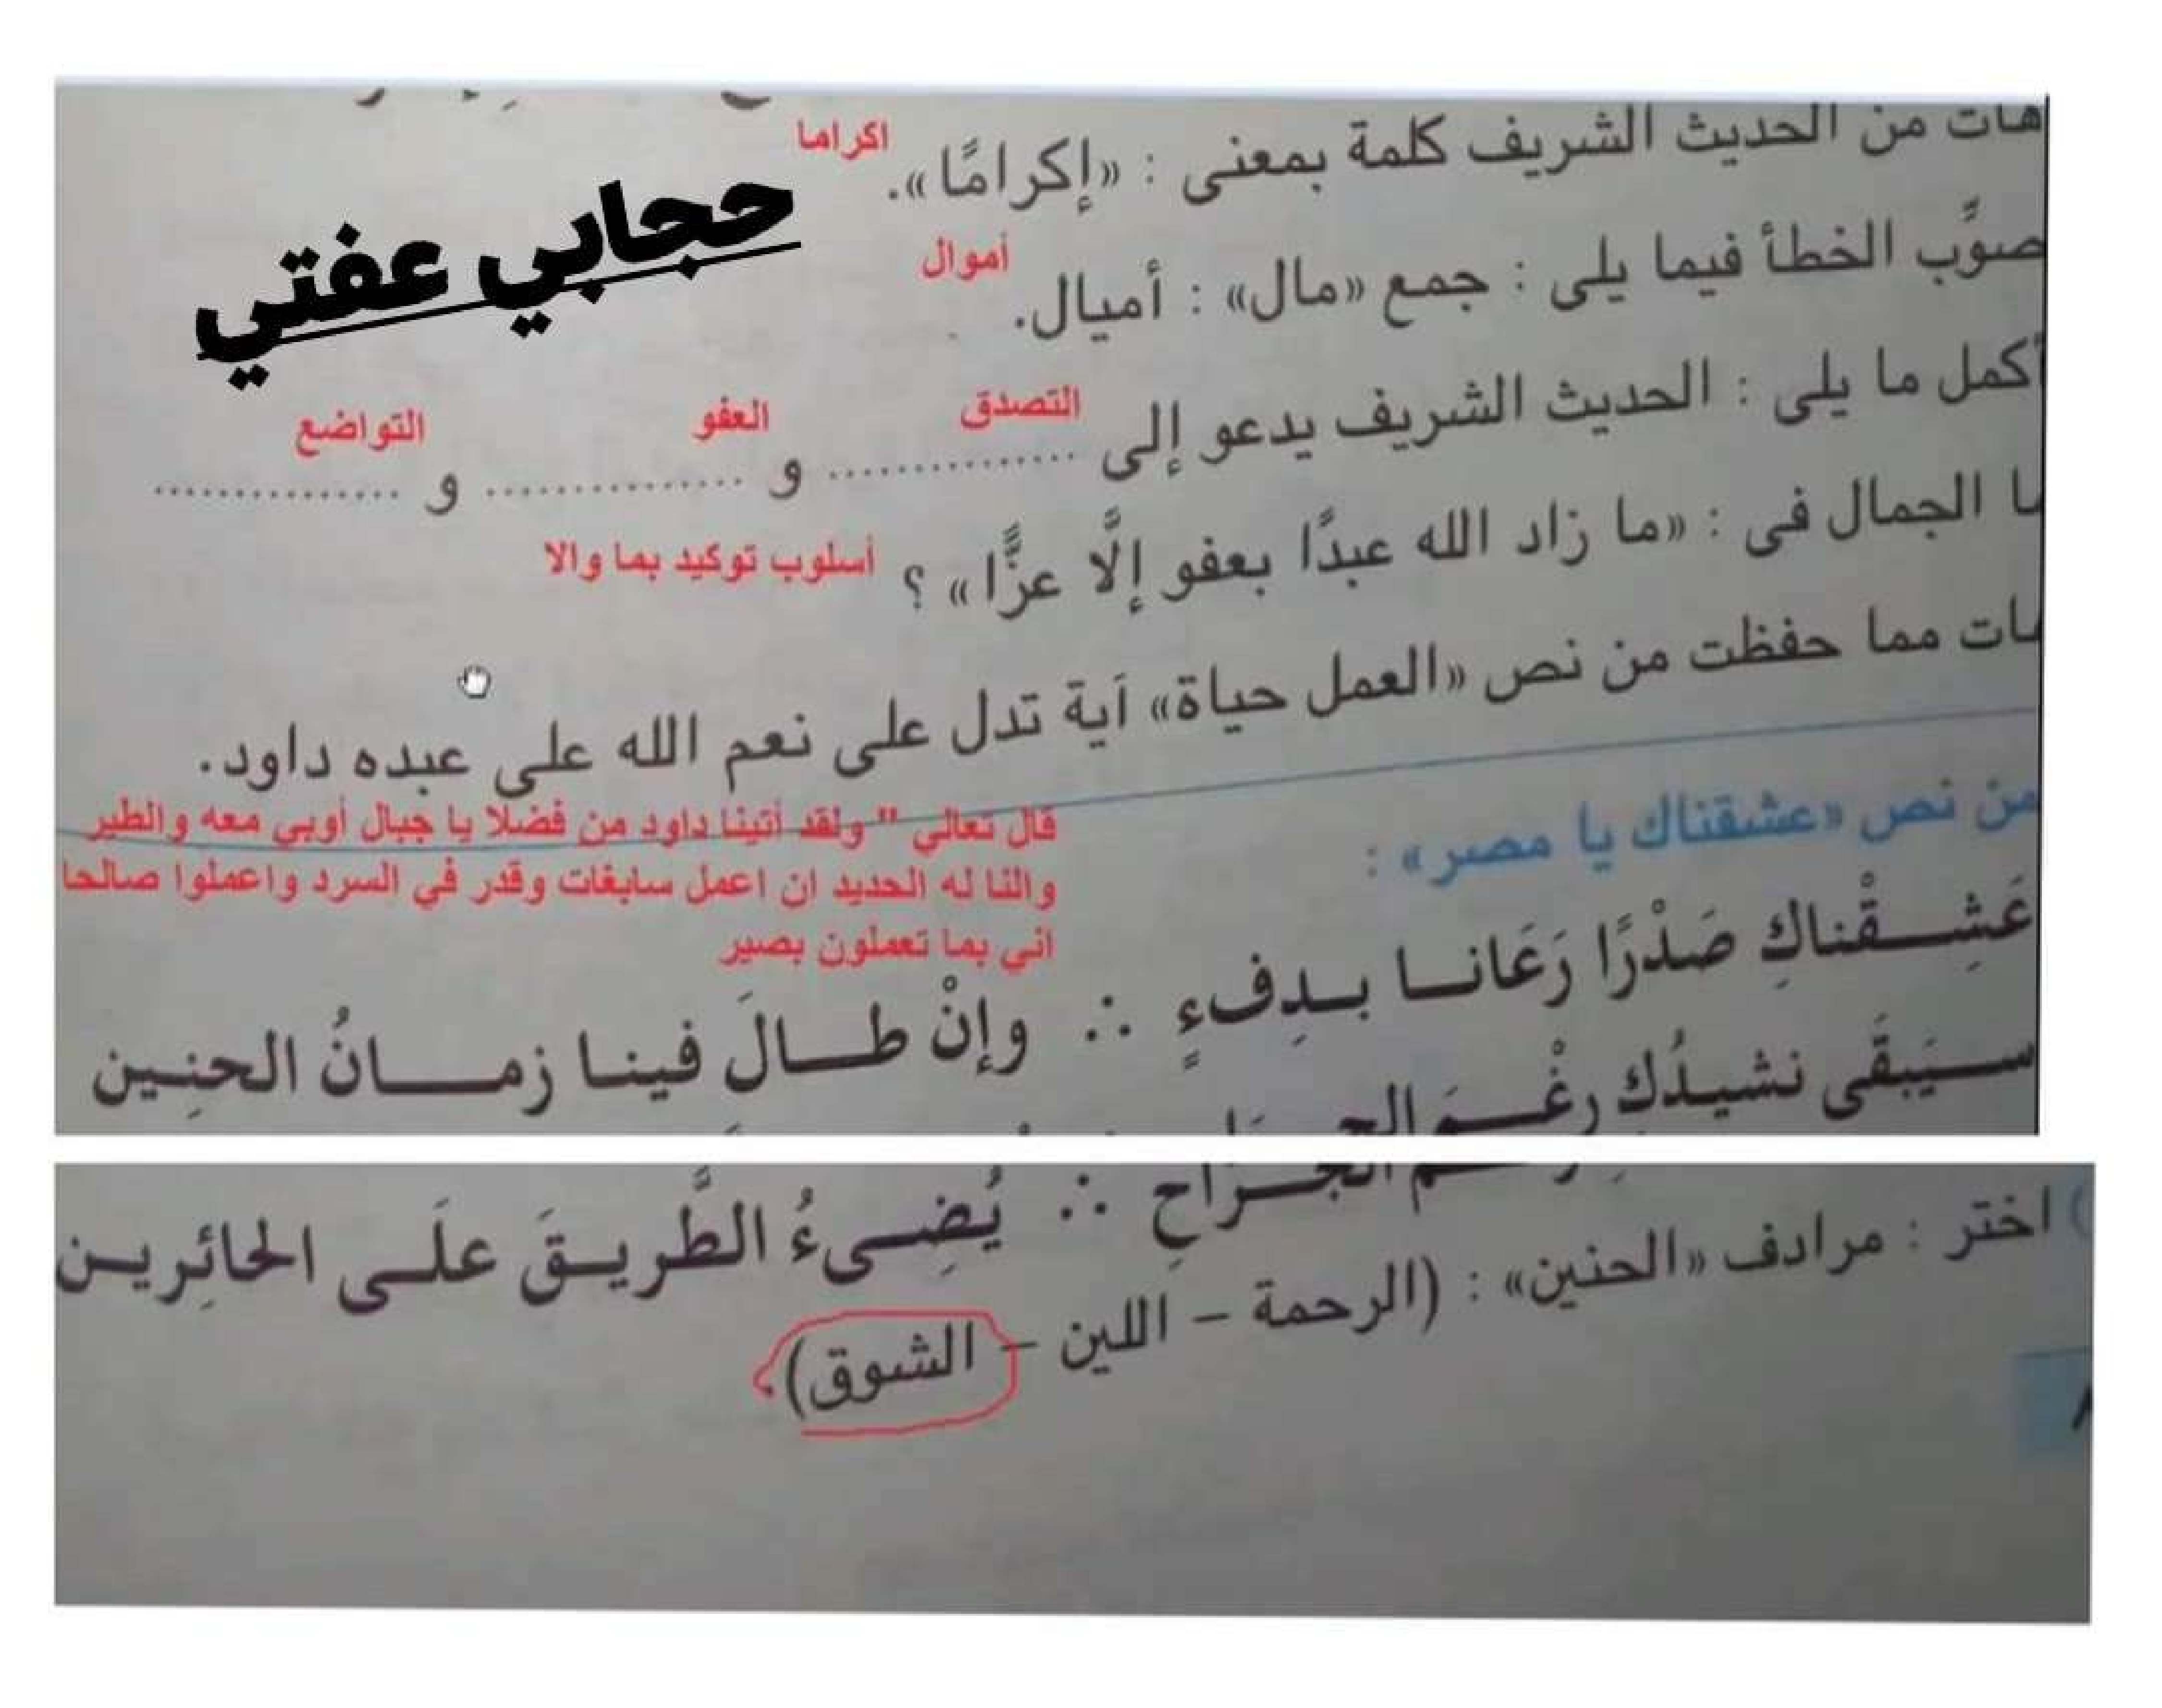 هات من الحديث الشريف كلمة بمعنى : «إكرامًا».
اكراما
حجابي عفتي
صوِّب الخطأ فيما يلى : جمع «مال» : أميال.
أموال
أكمل ما يلى : الحديث الشريف يدعو إلى ............... و ............... و ...............
التصدق العفو التواضع
ما الجمال فى : «ما زاد الله عبدًا بعفو إلَّا عزًّا» ؟
أسلوب توكيد بما والا
هات مما حفظت من نص «العمل حياة» آية تدل على نعم الله على عبده داود.
قال تعالي " ولقد أتينا داود من فضلا يا جبال أوبي معه والطير
والنا له الحديد ان اعمل سابغات وقدر في السرد واعملوا صالحا
اني بما تعملون بصير
من نص «عشقناك يا مصر» :
عَشِـقْناكِ صَدْرًا رَعَانـا بـدِفءٍ ∴ وإنْ طـالَ فينا زمـانُ الحنِين
سـيَبقَى نشيدُكِ رغْـمَ الجـرَاحِ ∴ يُضِـىءُ الطَّريـقَ علَـى الحائِريـن
اختر : مرادف «الحنين» : (الرحمة – اللين – الشوق).